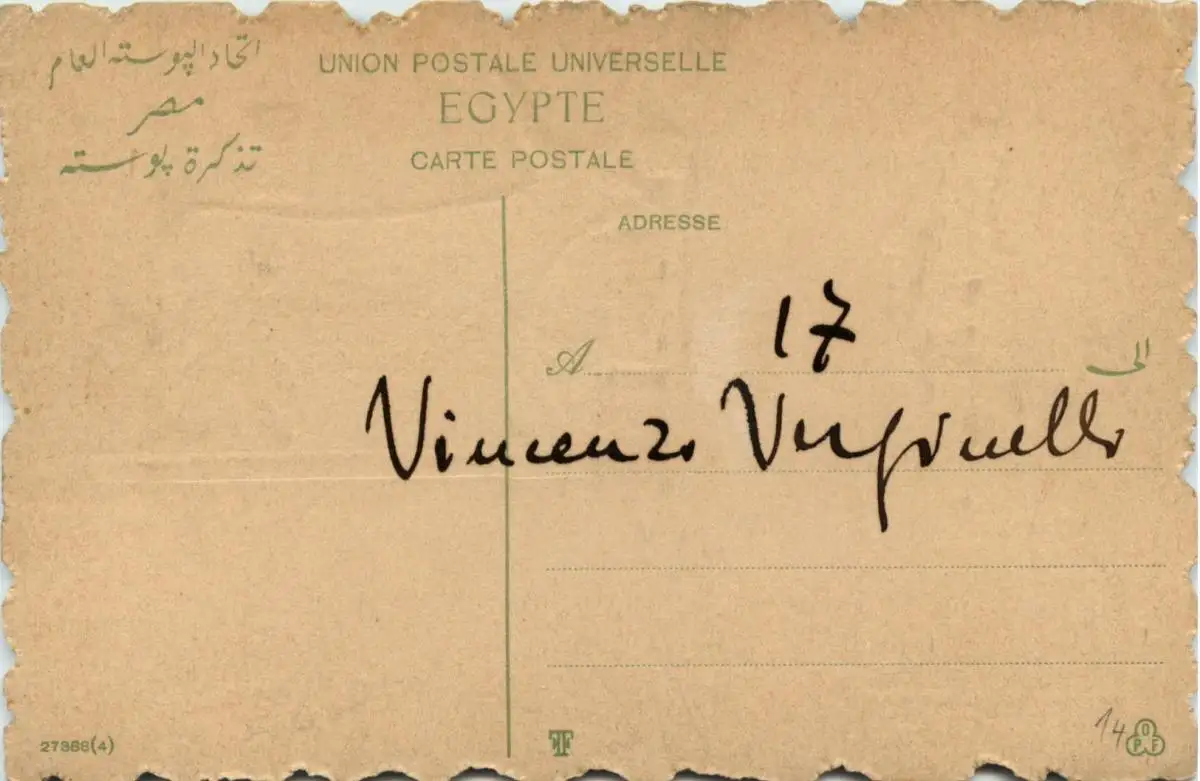 اتحاد البوسته العام
مصر
تذكرة پوسته
UNION POSTALE UNIVERSELLE
EGYPTE
CARTE POSTALE
ADRESSE
17
A الى
Vincenzo Verginelli
27368(4)
TF
14
OPF